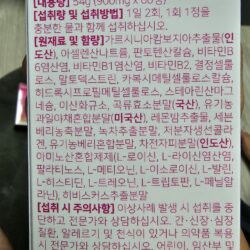 [내용량] 54g (900mg x 60정)
[섭취량 및 섭취방법] 1일 2회, 1회 1정을
충분한 물과 함께 섭취하십시오.
[원재료 및 함량] 가르시니아캄보지아추출물(인
도산), 아셀렌산나트륨, 판토텐산칼슘, 비타민B
6염산염, 비타민B1염산염, 비타민B2, 결정셀룰
로스, 말토덱스트린, 카복시메틸셀룰로스칼슘,
히드록시프로필메틸셀룰로스, 스테아린산마그
네슘, 이산화규소, 곡류효소분말(국산), 유기농
과일야채혼합분말(미국산), 레몬밤추출물, 세븐
베리농축분말, 녹차추출분말, 저분자생선콜라
겐, 유기농베리혼합분말, 차전자피분말(인도산),
아미노산혼합제제(L-로이신, L-라이신염산염,
팔라티노스, L-메티오닌, L-이소로이신, L-발린,
L-히스티딘, L-트레오닌, L-트립토판, L-페닐알
라닌), 히비스커스추출분말
[섭취 시 주의사항] 이상사례 발생 시 섭취를 중
단하고 전문가와 상담하십시오. 간·신장·심장
질환, 알레르기 및 천식이 있거나 의약품 복용
시 전문가와 상담하십시오. 어린이, 임산부 및